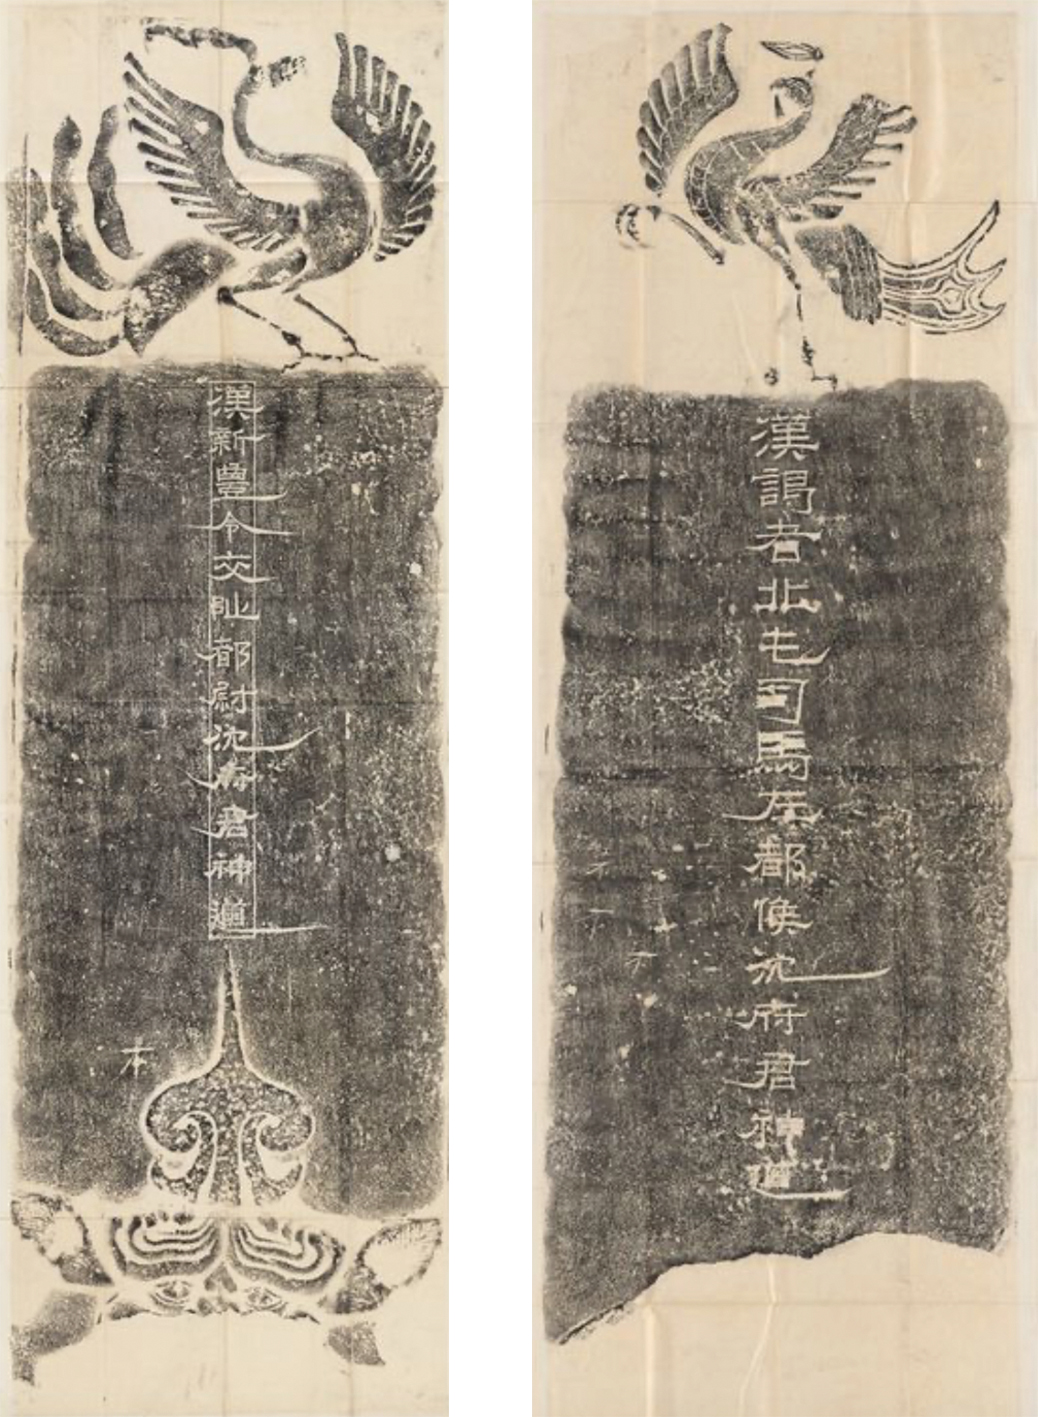 漢謁者北屯司馬左都候沈府君神道
漢新豐令交阯都尉沈府君神道
本